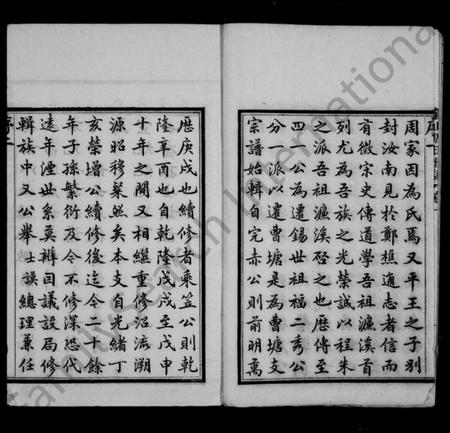 周家因為氏焉又平王之子別
封汝南見於鄭樵通志者信而
有徵宋史傳道學吾祖濂溪首
列尤為吾族之光榮誠以程朱
之派吾祖濂溪啓之也歷傳至
四一公為遷錫世祖福二秀公
分一派以遷曹塘是為曹塘支
宗譜始輯自完赤公則前明萬
歷庚戌也續修者乘笠公則乾
隆辛酉也自乾隆戊戌至戊申
十年之間又相繼重修沿流溯
源昭穆粲然矣本支自光緒丁
亥榮增公續修後迄今二十餘
年子孫繁衍及今不修深恐代
遠年湮世系莫辦囙議設局修
輯族中又公舉士誤總理兼任
序二
Family Search International